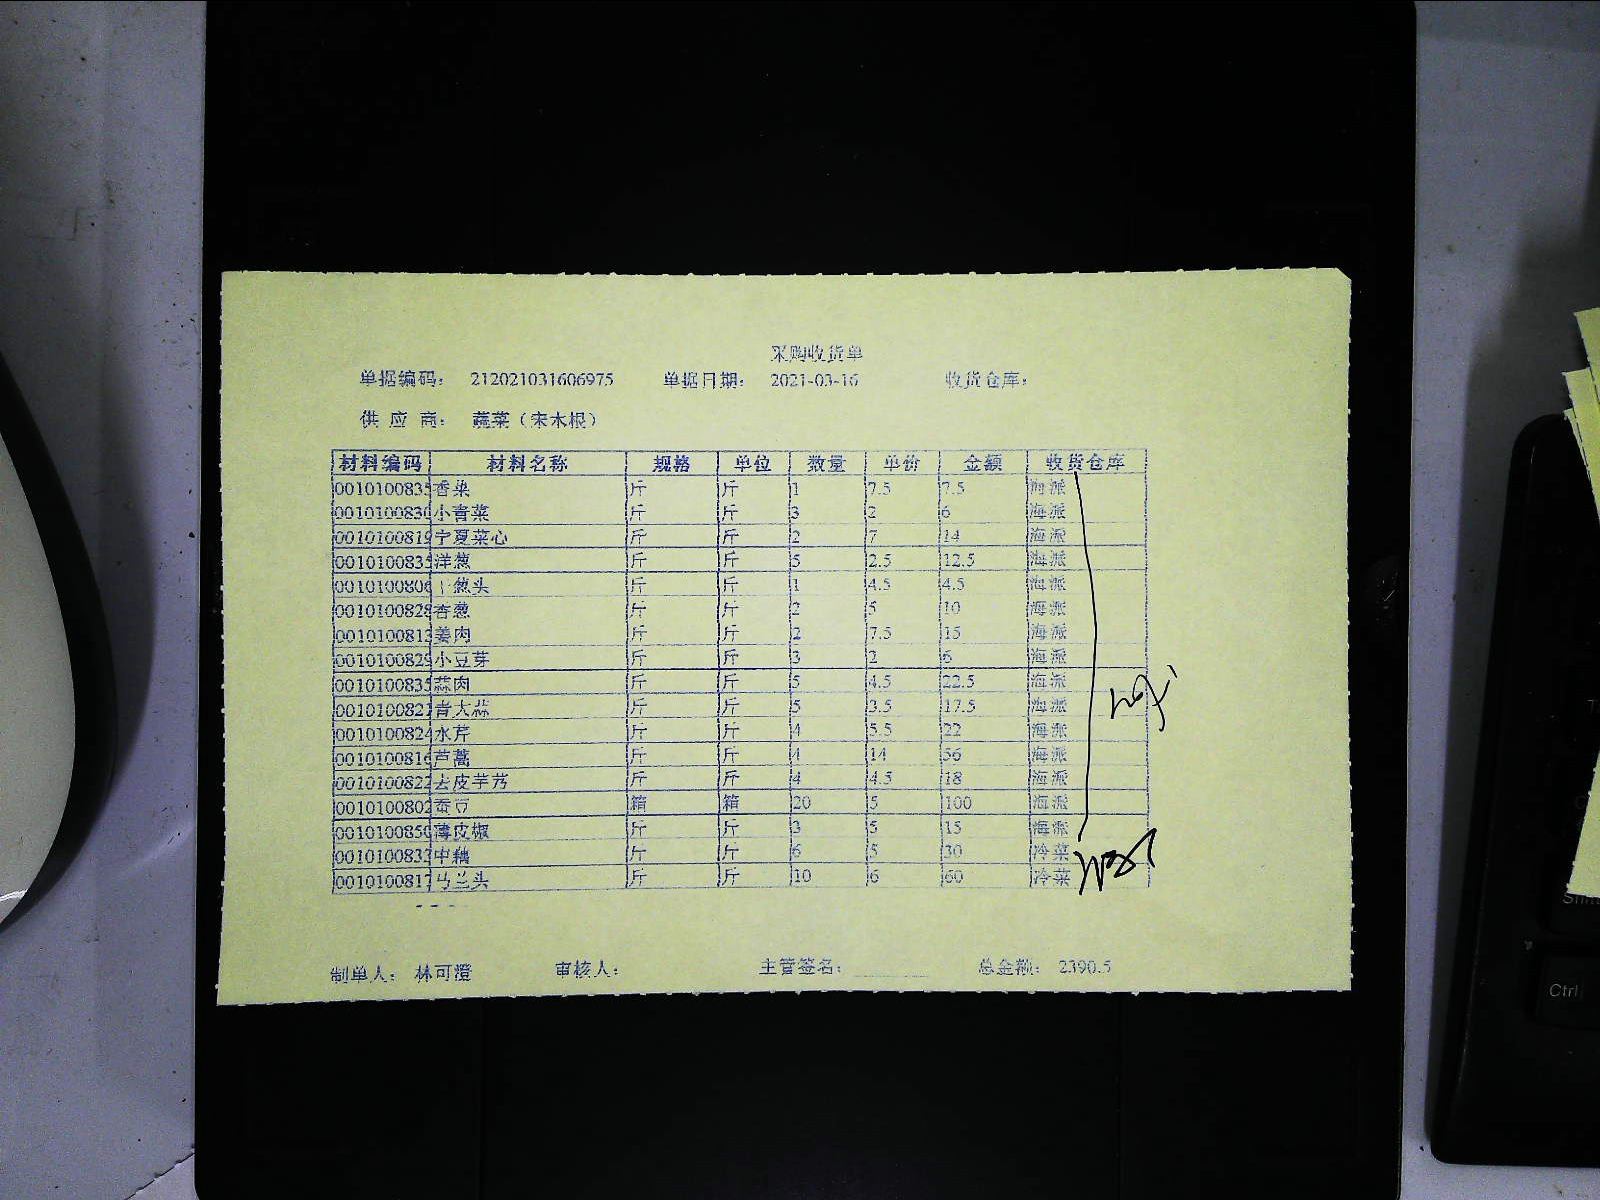 采购收货单
单据编码： 212021031606975 单据日期： 2021-03-16 收货仓库：
供 应 商： 蔬菜（宋木根）
材料编码 材料名称 规格 单位 数量 单价 金额 收货仓库
0010100835 香菜 斤 斤 1 7.5 7.5 海派
0010100830 小青菜 斤 斤 3 2 6 海派
0010100819 宁夏菜心 斤 斤 2 7 14 海派
0010100835 洋葱 斤 斤 5 2.5 12.5 海派
0010100806 干葱头 斤 斤 1 4.5 4.5 海派
0010100828 香葱 斤 斤 2 5 10 海派
0010100813 姜肉 斤 斤 2 7.5 15 海派
0010100829 小豆芽 斤 斤 3 2 6 海派
0010100835 蒜肉 斤 斤 5 4.5 22.5 海派
0010100821 青大蒜 斤 斤 5 3.5 17.5 海派
0010100824 水芹 斤 斤 4 5.5 22 海派
0010100816 芦蒿 斤 斤 4 14 56 海派
0010100822 去皮芋艿 斤 斤 4 4.5 18 海派
0010100802 蚕豆 箱 箱 20 5 100 海派
0010100850 薄皮椒 斤 斤 3 5 15 海派
0010100833 中藕 斤 斤 6 5 30 冷菜
0010100817 马兰头 斤 斤 10 6 60 冷菜
制单人： 林可澄 审核人： 主管签名： 总金额： 2390.5